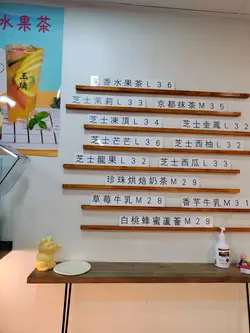 水果茶
玉璃
香水果茶L36
芝士茉莉L33 京都抹茶M35
芝士凍頂L34 芝士金鳳L3
芝士芒芒L36 芝士西柚L32
芝士龍果L32 芝士西瓜L33
珍珠烘焙奶茶M29
草莓牛乳M28 香芋牛乳M31
白桃蜂蜜蘆薈M29